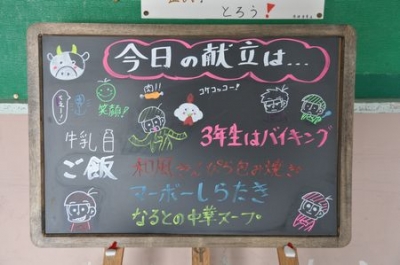 とろう!
今日の献立は…
肉!!
コケコッコー!
笑顔!
牛乳
3年生はバイキング
ご飯
マーボーしらたき
なるとの中華スープ